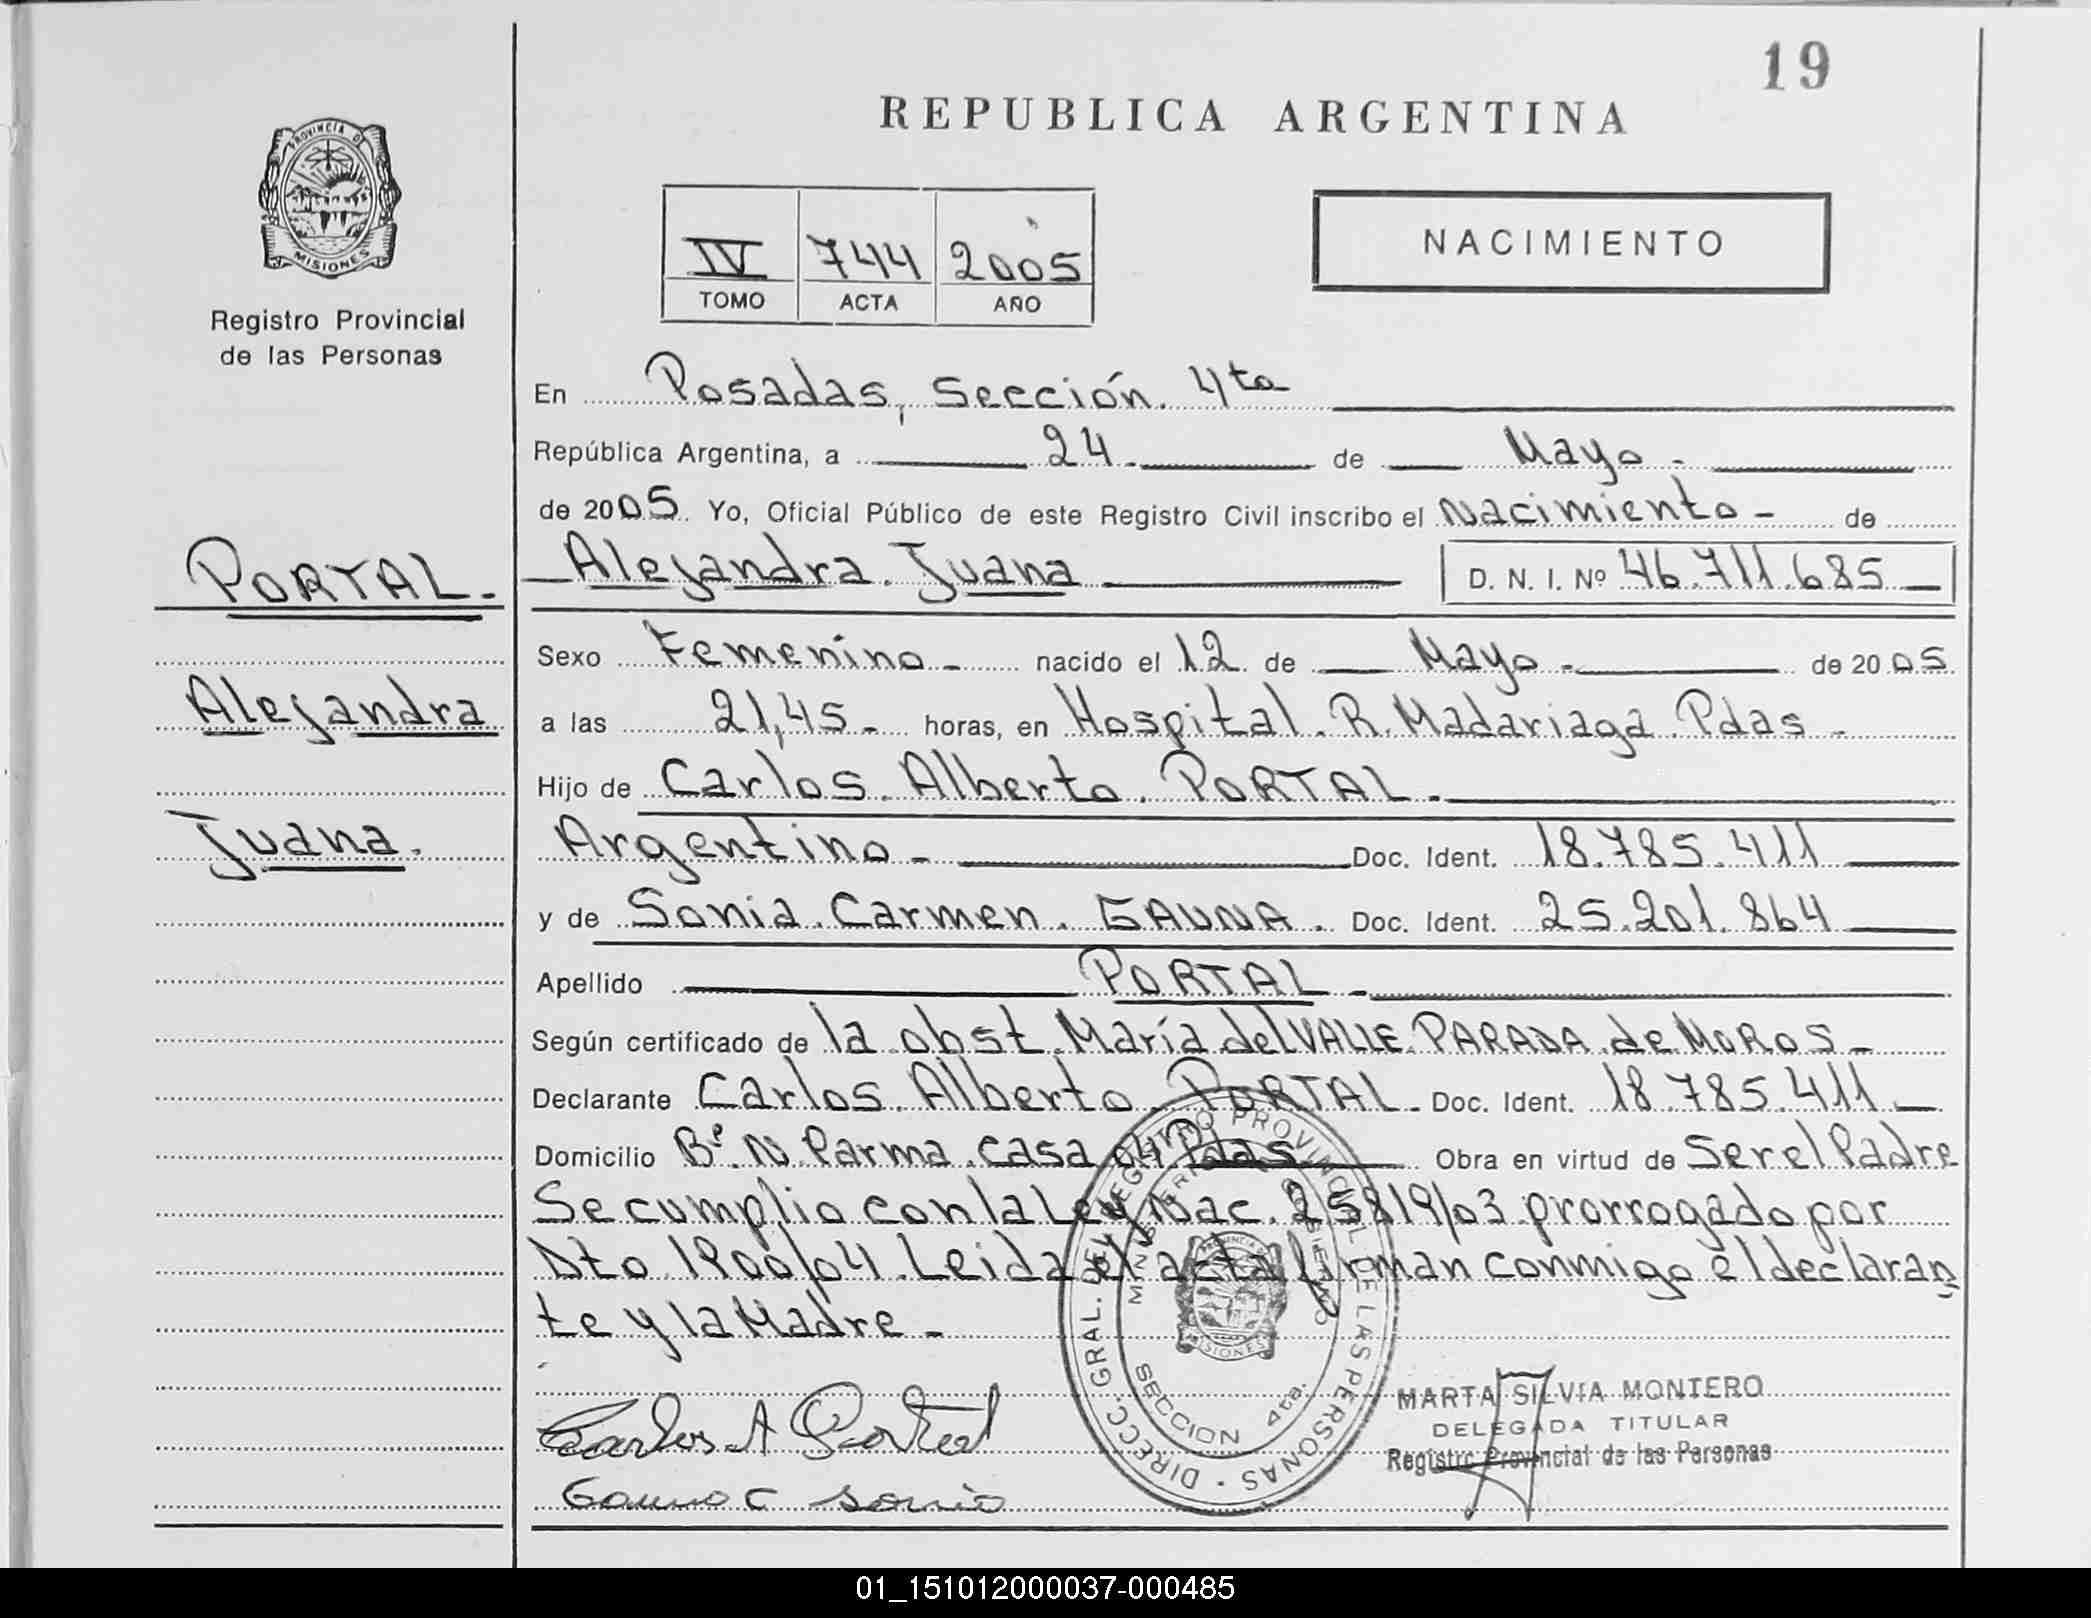 19
REPUBLICA ARGENTINA
PROVINCIA DE
MISIONES
Registro Provincial
de las Personas
IV 744 2005
TOMO ACTA AÑO
NACIMIENTO
En Posadas, Sección 4ta
República Argentina, a 24 de Mayo
de 2005. Yo, Oficial Público de este Registro Civil inscribo el Nacimiento - de
PORTAL.
Alejandra Juana D. N. I. Nº 46.711.685
Sexo Femenino - nacido el 12 de Mayo - de 2005
Alejandra
a las 21,45 - horas, en Hospital R. Madariaga Pdas -
Hijo de Carlos Alberto PORTAL.
Juana.
Argentino - Doc. Ident. 18.785.411
y de Sonia Carmen GAUNA. Doc. Ident. 25.201.864
Apellido PORTAL -
Según certificado de la obst. María del VALLE PARADA de MOROS -
Declarante Carlos Alberto PORTAL - Doc. Ident. 18.785.411
Domicilio Bº N Parma casa 04 Pdas Obra en virtud de Ser el Padre
Se cumplio con la Ley Nac. 25819/03 prorrogado por
Dto 1900/04. Leida el acta firman conmigo el declaran
te y la Madre -
DIRECC. GRAL. DEL REGISTRO PROVINCIAL DE LAS PERSONAS
MINISTERIO GOBIERNO
PROVINCIA DE
MISIONES
SECCION 4ta.
Carlos A Portal
Gauna C Sonia
MARTA SILVIA MONTERO
DELEGADA TITULAR
Registro Provincial de las Personas
01_151012000037-000485